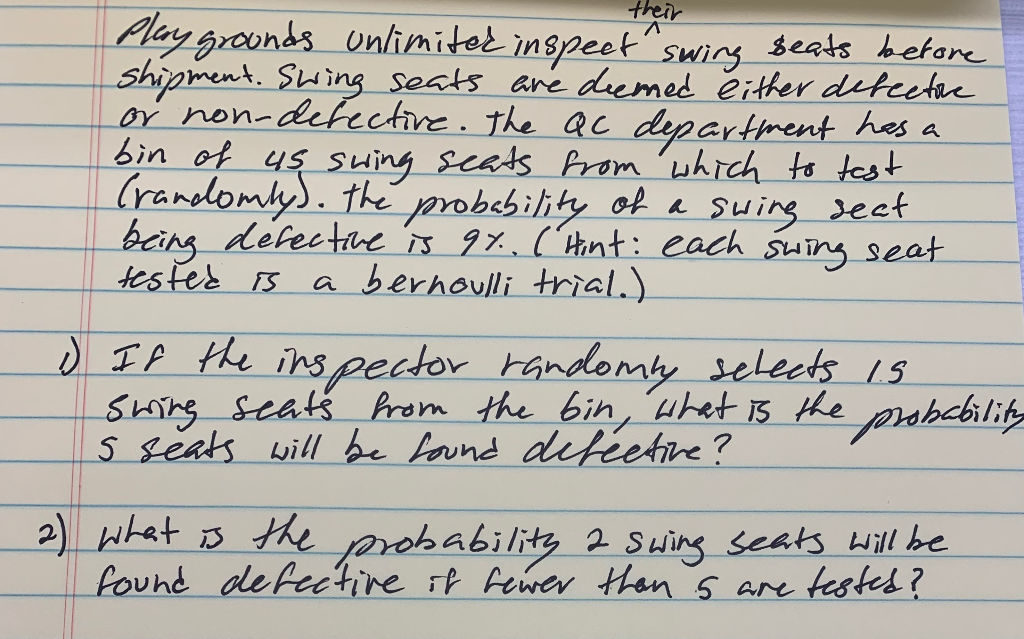 their
Playgrounds unlimited inspect ^ swing seats before
shipment. Swing seats are deemed either defective
or non-defective. The QC department has a
bin of 45 swing seats from which to test
(randomly). The probability of a swing seat
being defective is 9%. (Hint: each swing seat
tested is a bernoulli trial.)
1) If the inspector randomly selects 15
swing seats from the bin, what is the probability
5 seats will be found defective?
2) what is the probability 2 swing seats will be
found defective if fewer than 5 are tested?